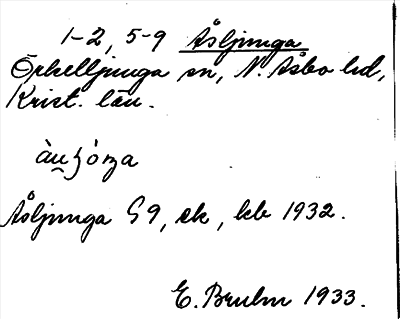 1-2, 5-9 Åsljunga
Örkelljunga sn, N. Åsbo hd,
Krist. län.
Åsljunga G9, ek, kb 1932.
E. Bruhn 1933.